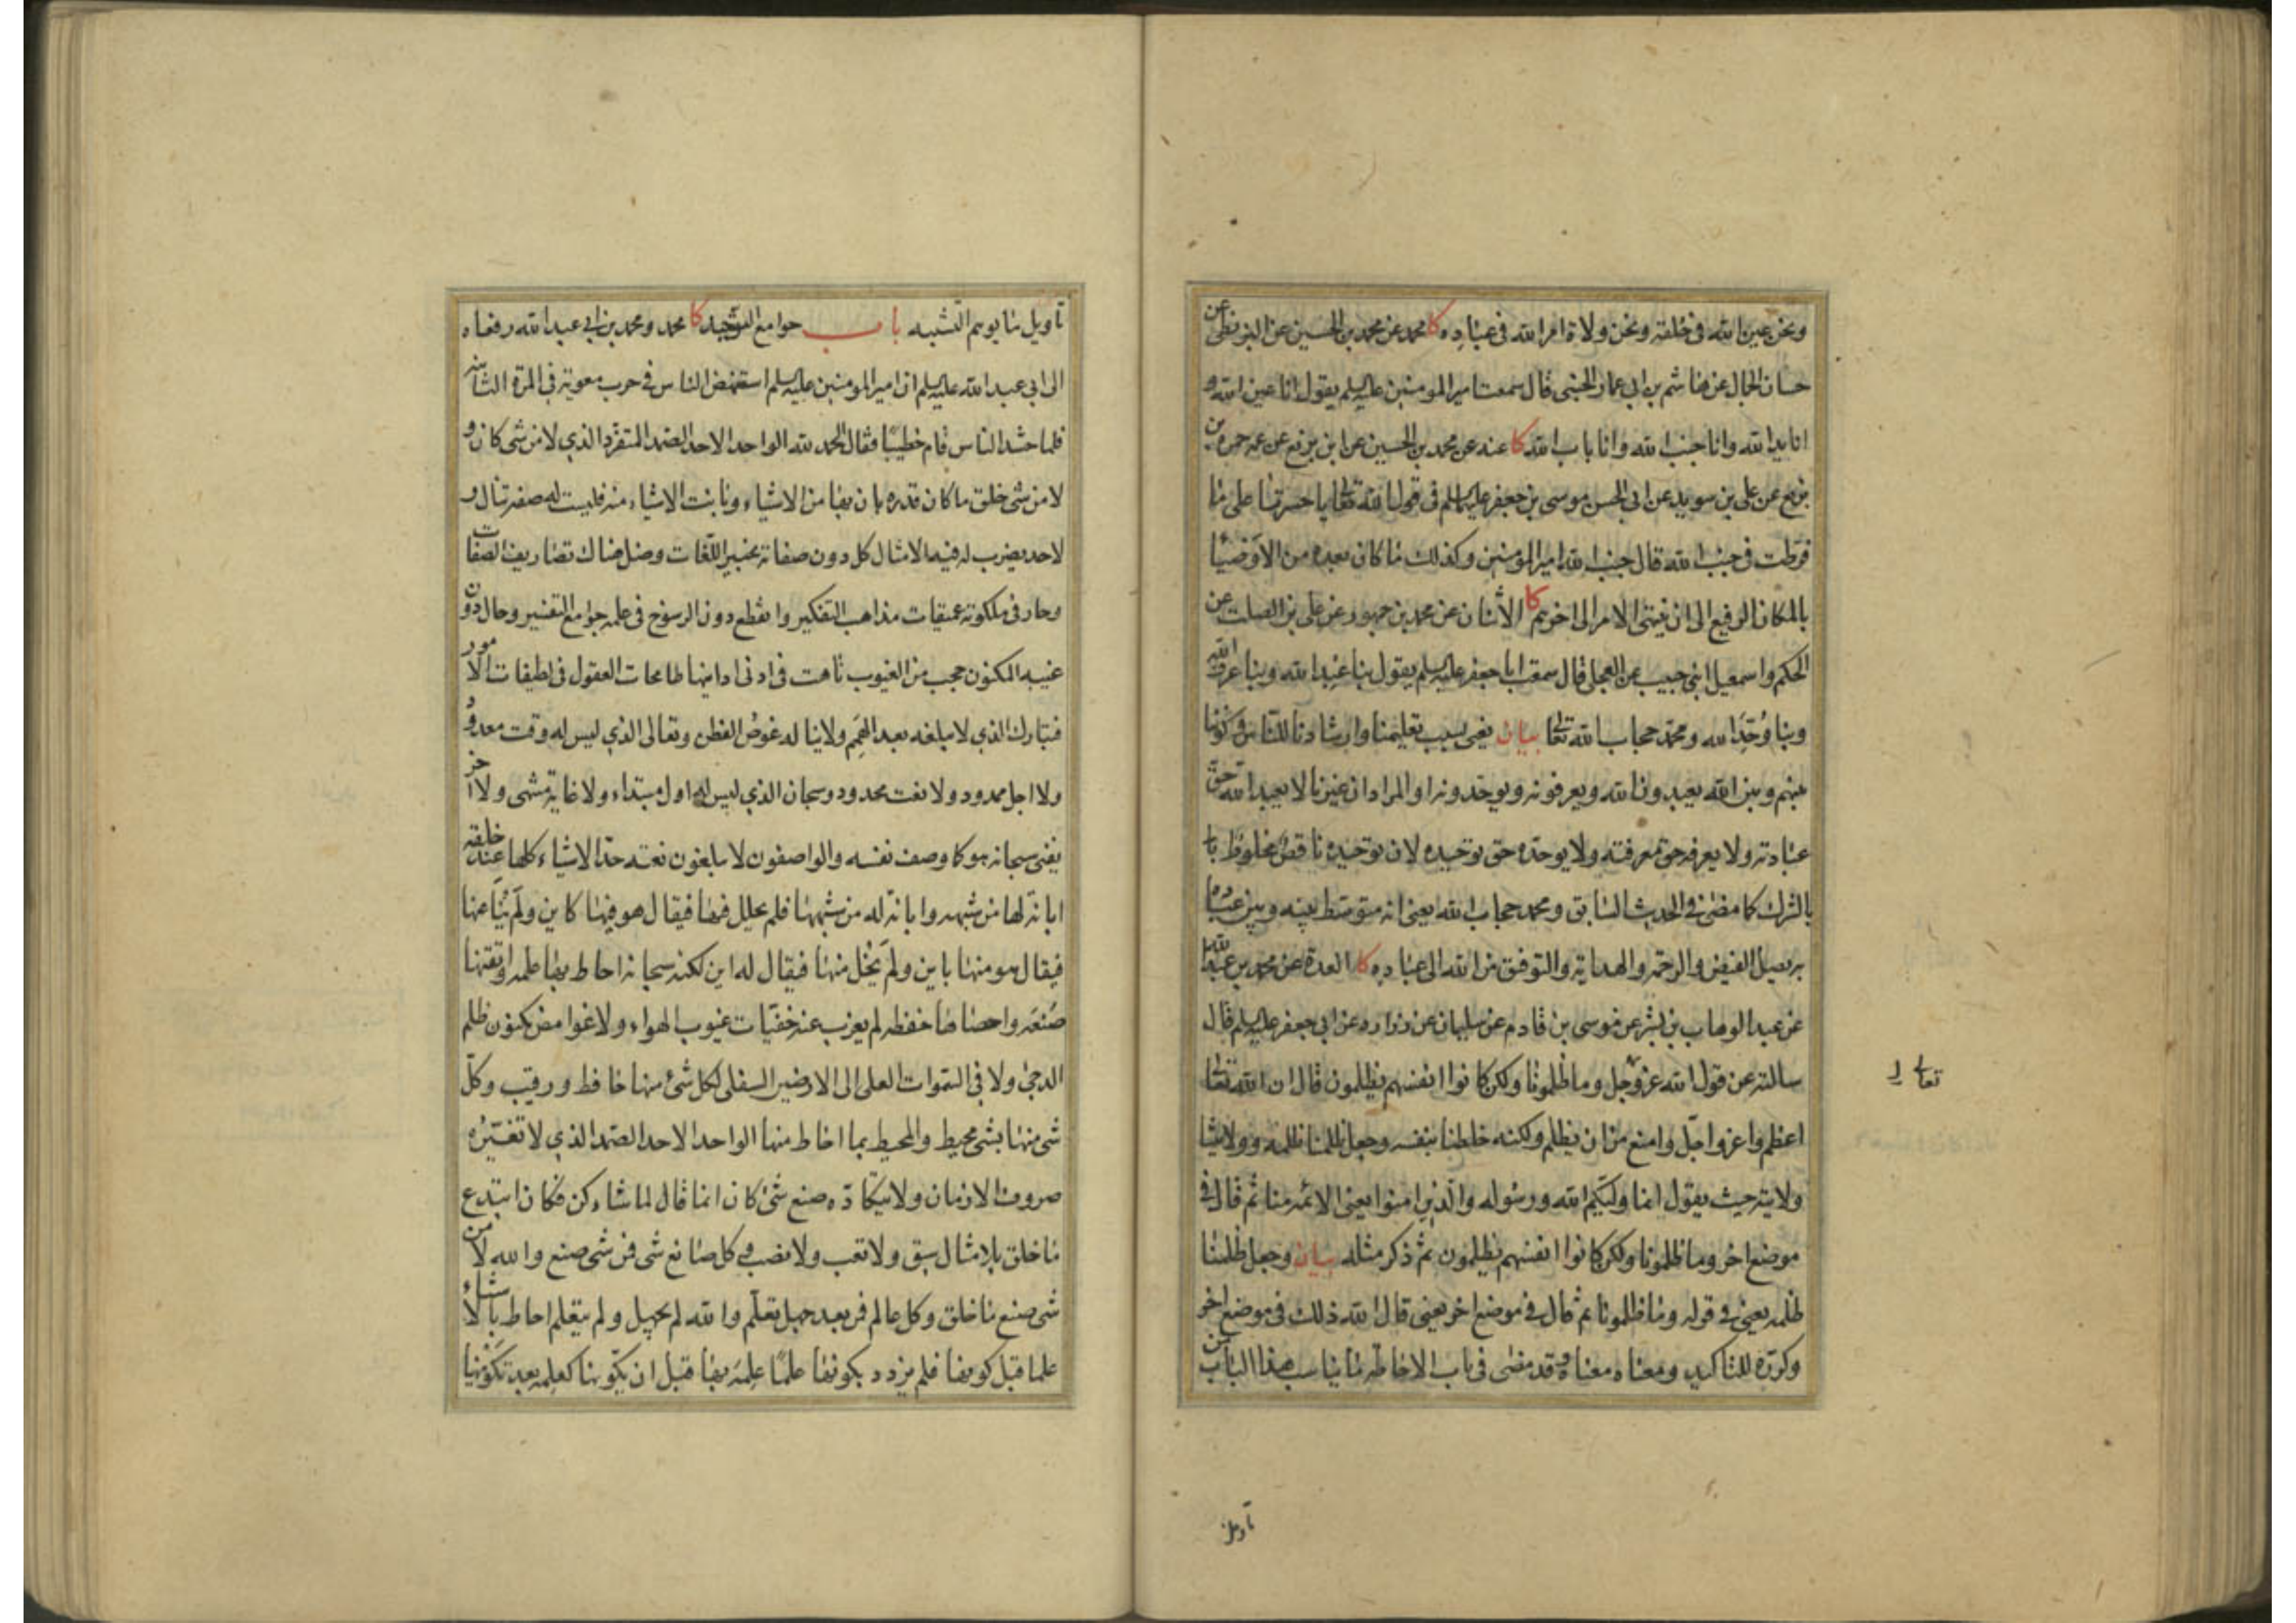 ونحن عين الله في خلقه ونحن ولاة امر الله في عباده كا محمد عن محمد بن الحسين عن البزنطي عن
حسان الجمال عن هاشم بن ابي عمار الجنبي قال سمعت امير المومنين عليه السلم يقول انا عين الله و
انا يد الله وانا جنب الله وانا باب الله كا عنه عن محمد بن الحسين عن ابن بزيع عن عمه حمزة بن
بزيع عن علي بن سويد عن ابي الحسن موسى بن جعفر عليهما السلم في قول الله تعالى يا حسرتا على ما
فرطت في جنب الله قال جنب الله امير المؤمنين وكذلك ما كان بعده من الاوصيا
بالمكان الرفيع الى ان ينتهى الامر الى اخرهم كا الاثنان عن محمد بن جمهور عن علي بن الصلت عن
الحكم واسمعيل ابنى حبيب عن العجلي قال سمعت ابا جعفر عليه السلم يقول بنا عبد الله وبنا عرف الله
وبنا وُحّد الله ومحمد حجاب الله تعالى بيان يعني بسبب تعليمنا وارشادنا للناس وكوننا
بينهم وبين الله يعبدون الله ويعرفونه ويوحدونه او المراد ان غيرنا لا يعبد الله حق
عبادته ولا يعرفه حق معرفته ولا يوحده حق توحيده لان توحيده ناقص مخلوط با
بالشرك كما مضى في الحديث السابق ومحمد حجاب الله يعني انه متوسط بينه وبين عباده
به يصل الفيض والرحمة والهداية والتوفيق من الله الى عباده كا العدة عن محمد بن عبد الله
عن عبد الوهاب بن بشر عن موسى بن قادم عن سليمان عن زرارة عن ابي جعفر عليه السلم قال
سالته عن قول الله عز وجل وما ظلمونا ولكن كانوا انفسهم يظلمون قال ان الله تعالى
اعظم واعز واجل وامنع من ان يظلم ولكنه خلطنا بنفسه وجعل ظلمنا ظلمه وولايتنا
ولايته حيث يقول انما وليكم الله ورسوله والذين امنوا يعنى الائمه منا ثم قال في
موضع اخر وما ظلمونا ولكن كانوا انفسهم يظلمون ثم ذكر مثله بيان وجعل ظلمنا
ظلمه يعنى في قوله وما ظلمونا ثم قال في موضع اخر يعنى قال الله ذلك في موضع اخر
وكرره للتاكيد ومعناه معناه وقد مضى في باب الاحاطه ما يناسب هذا الباب من
تعالى
تاويل
تاويل ما يوهم التشبيه باب جوامع التوحيد كا محمد ومحمد بن ابي عبد الله رفعاه
الى ابي عبد الله عليه السلم ان امير المومنين عليه السلم استنهض الناس في حرب معويه في المرة الثانيه
فلما حشد الناس قام خطيبا فقال الحمد لله الواحد الاحد الصمد المتفرد الذي لا من شى كان و
لا من شى خلق ما كان قدره بان بها من الاشياء وبانت الاشياء منه فليست له صفه تنال و
لا حد يضرب له فيه الامثال كل دون صفاته تحبير اللغات وضل هناك تصاريف الصفات
وحار في ملكوته عميقات مذاهب التفكير وانقطع دون الرسوخ في علمه جوامع التفسير وحال دون
غيبه المكنون حجب من الغيوب تاهت في ادنى ادانيها طامحات العقول في لطيفات الامور
فتبارك الذي لا يبلغه بعد الهمم ولا يناله غوص الفطن وتعالى الذي ليس له وقت معدود
ولا اجل ممدود ولا نعت محدود وسبحان الذي ليس له اول مبتداء ولا غاية منتهى ولا اخر
يفنى سبحانه هو كما وصف نفسه والواصفون لا يبلغون نعته حد الاشياء كلها عند خلقه
ابانة لها من شبهه وابانة له من شبهها فلم يحلل فيها فيقال هو فيها كاين ولم ينا عنها
فيقال هو منها باين ولم يخل منها فيقال له اين لكنه سبحانه احاط بها علمه واتقنها
صنعه واحصاها حفظه لم يعزب عنه خفيات غيوب الهواء ولا غوامض مكنون ظلم
الدجى ولا في السموات العلى الى الارضين السفلى لكل شىء منها حافظ ورقيب وكل
شى منها بشى محيط والمحيط بما احاط منها الواحد الاحد الصمد الذي لا تغيره
صروف الازمان ولا يتكاده صنع شىء كان انما قال لما شاء كن فكان ابتدع
ما خلق بلا مثال سبق ولا تعب ولا نصب وكل صانع شى فمن شى صنع والله لا من
شى صنع ما خلق وكل عالم فمن بعد جهل تعلم والله لم يجهل ولم يتعلم احاط بالاشياء
علما قبل كونها فلم يزدد بكونها علما علمه بها قبل ان يكونها كعلمه بعد تكوينها